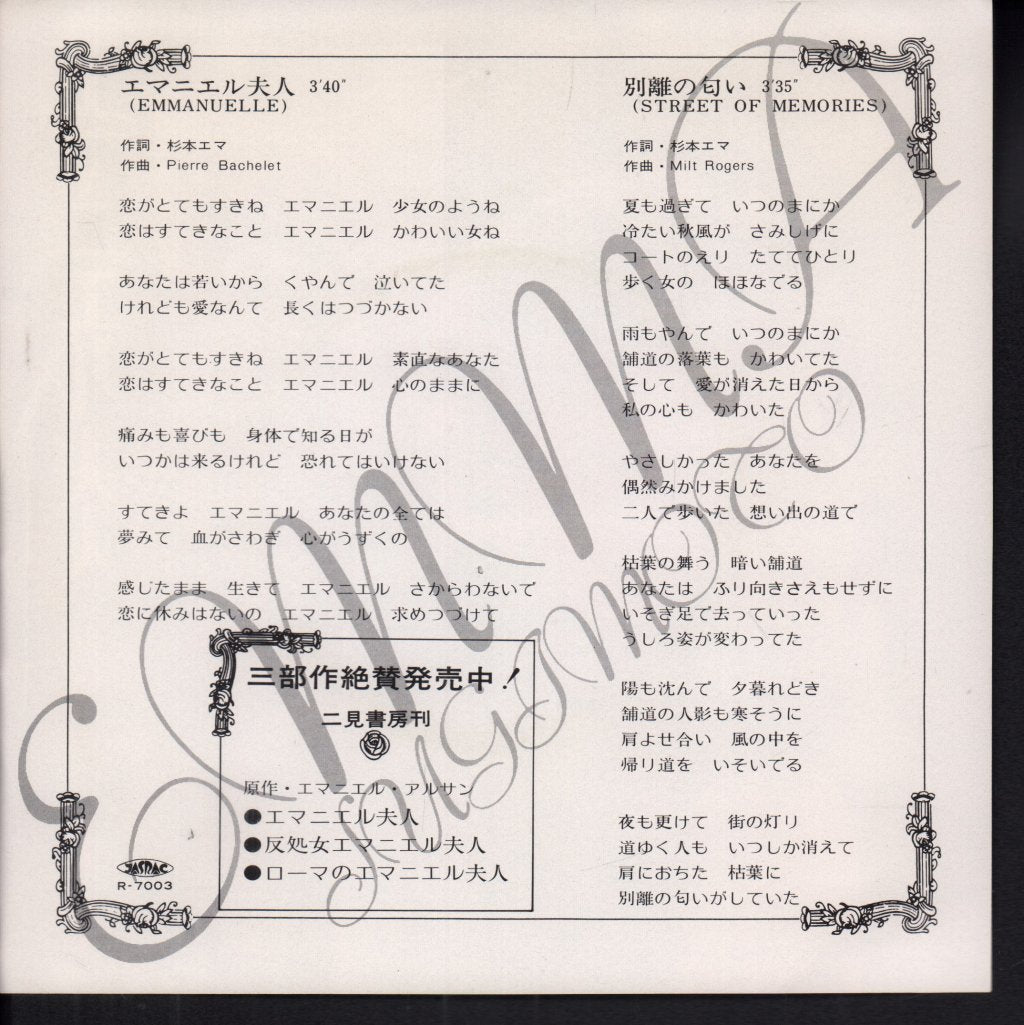 エマニエル夫人 3'40"
(EMMANUELLE)
作詞・杉本エマ
作曲・Pierre Bachelet
恋がとてもすきね エマニエル 少女のようね
恋はすてきなこと エマニエル かわいい女ね
あなたは若いから くやんで 泣いてた
けれども愛なんて 長くはつづかない
恋がとてもすきね エマニエル 素直なあなた
恋はすてきなこと エマニエル 心のままに
痛みも喜びも 身体で知る日が
いつかは来るけれど 恐れてはいけない
すてきよ エマニエル あなたの全ては
夢みて 血がさわぎ 心がうずくの
感じたまま 生きて エマニエル さからわないで
恋に休みはないの エマニエル 求めつづけて
三部作絶賛発売中!
二見書房刊
原作・エマニエル・アルサン
●エマニエル夫人
●反処女エマニエル夫人
●ローマのエマニエル夫人
JASRAC
R-7003
別離の匂い 3'35"
(STREET OF MEMORIES)
作詞・杉本エマ
作曲・Milt Rogers
夏も過ぎて いつのまにか
冷たい秋風が さみしげに
コートのえり たててひとり
歩く女の ほほなでる
雨もやんで いつのまにか
舗道の落葉も かわいてた
そして 愛が消えた日から
私の心も かわいた
やさしかった あなたを
偶然みかけました
二人で歩いた 想い出の道で
枯葉の舞う 暗い舗道
あなたは ふり向きさえもせずに
いそぎ足で去っていった
うしろ姿が変わってた
陽も沈んで 夕暮れどき
舗道の人影も寒そうに
肩よせ合い 風の中を
帰り道を いそいでる
夜も更けて 街の灯り
道ゆく人も いつしか消えて
肩におちた 枯葉に
別離の匂いがしていた
EMMA
SUGIMOTO